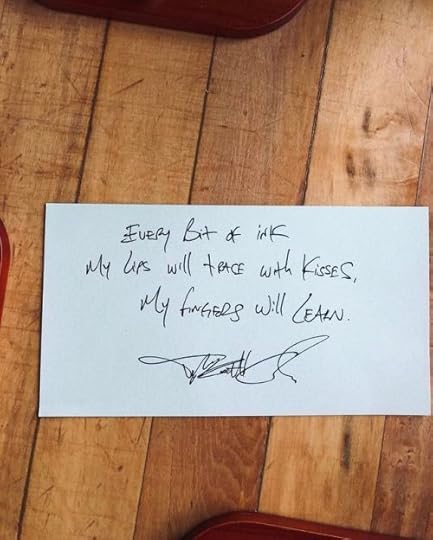 Every Bit of ink
My Lips will trace with Kisses,
My fingers will Learn.